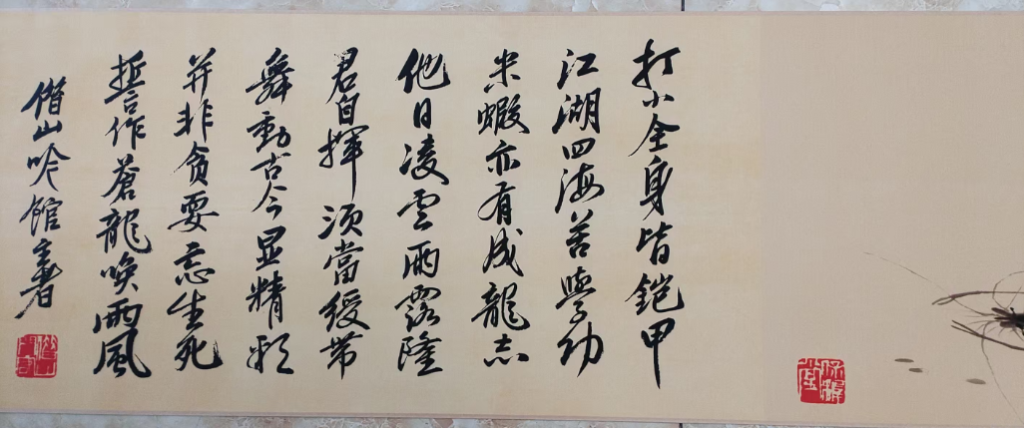 打小全身皆鎧甲
江湖四海苦學功
米蝦亦有成龍志
他日凌雲雨露隆
君自揮須當綬帶
舞動古今显精彩
并非貪耍忘生死
誓作蒼龍喚雨風
僭山吟館主者